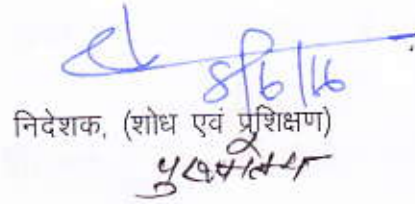 8/6/16
निदेशक, (शोध एवं प्रशिक्षण)